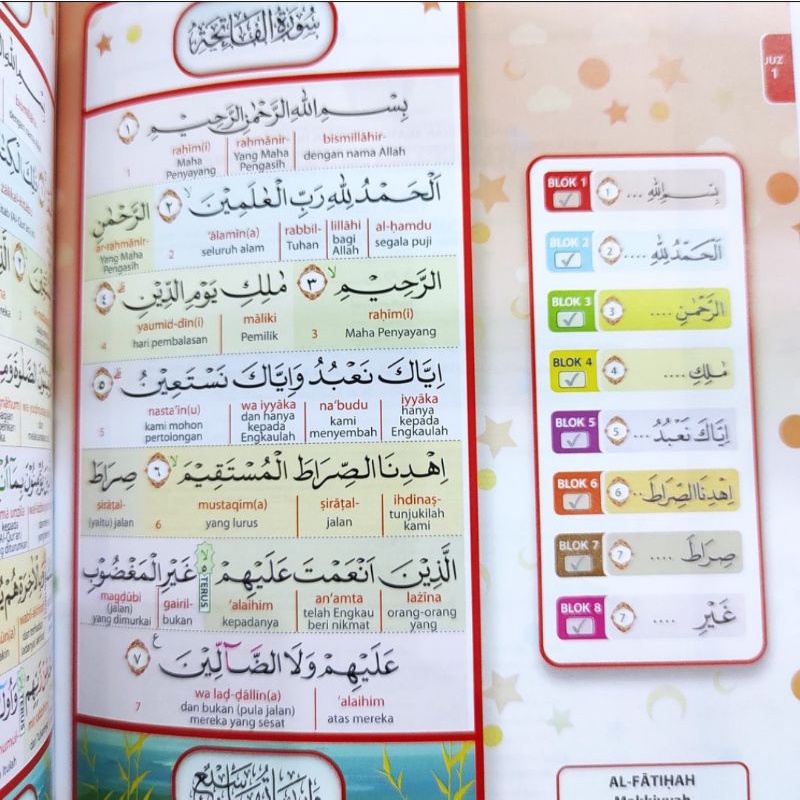 سُورَةُ الْفَاتِحَةِ
بِسْمِ اللّٰهِ الرَّحْمٰنِ الرَّحِيْمِ ١
bismillāhir- rahmānir- rahīm(i)
dengan nama Allah Yang Maha Pengasih Maha Penyayang
1
اَلْحَمْدُ لِلّٰهِ رَبِّ الْعٰلَمِيْنَ ٢ الرَّحْمٰنِ
al-ḥamdu lillāhi rabbil- 'ālamīn(a) ar-rahmānir-
segala puji bagi Allah Tuhan seluruh alam Yang Maha Pengasih
2
الرَّحِيْمِ ٣ مٰلِكِ يَوْمِ الدِّيْنِ ٤
raḥīm(i) māliki yaumid-dīn(i)
Maha Penyayang Pemilik hari pembalasan
3 4
اِيَّاكَ نَعْبُدُ وَاِيَّاكَ نَسْتَعِيْنُ ٥
iyyāka na'budu wa iyyāka nasta'īn(u)
hanya kepada Engkaulah kami menyembah dan hanya kepada Engkaulah kami mohon pertolongan
5
اِهْدِنَا الصِّرَاطَ الْمُسْتَقِيْمَ ٦ صِرَاطَ
ihdinaṣ- ṣirāṭal- mustaqīm(a) ṣirāṭal-
tunjukilah kami jalan yang lurus (yaitu) jalan
6
الَّذِيْنَ اَنْعَمْتَ عَلَيْهِمْ TERUS غَيْرِ الْمَغْضُوْبِ
lażīna an'amta 'alaihim gairil- magḍūbi
orang-orang yang telah Engkau beri nikmat kepadanya bukan (jalan) yang dimurkai
عَلَيْهِمْ وَلَا الضَّاۤلِّيْنَ ٧
'alaihim wa laḍ-ḍāllīn(a)
atas mereka dan bukan (pula jalan) mereka yang sesat
7
JUZ
1
BLOK 1 بِسْمِ اللّٰهِ ... 1
BLOK 2 اَلْحَمْدُ لِلّٰهِ .... 2
BLOK 3 الرَّحْمٰنِ .... 3
BLOK 4 مٰلِكِ .... 4
BLOK 5 اِيَّاكَ نَعْبُدُ ... 5
BLOK 6 اِهْدِنَا الصِّرَاطَ .. 6
BLOK 7 صِرَاطَ .... 7
BLOK 8 غَيْرِ .... 7
AL-FĀTIḤAH
Makkiyyah